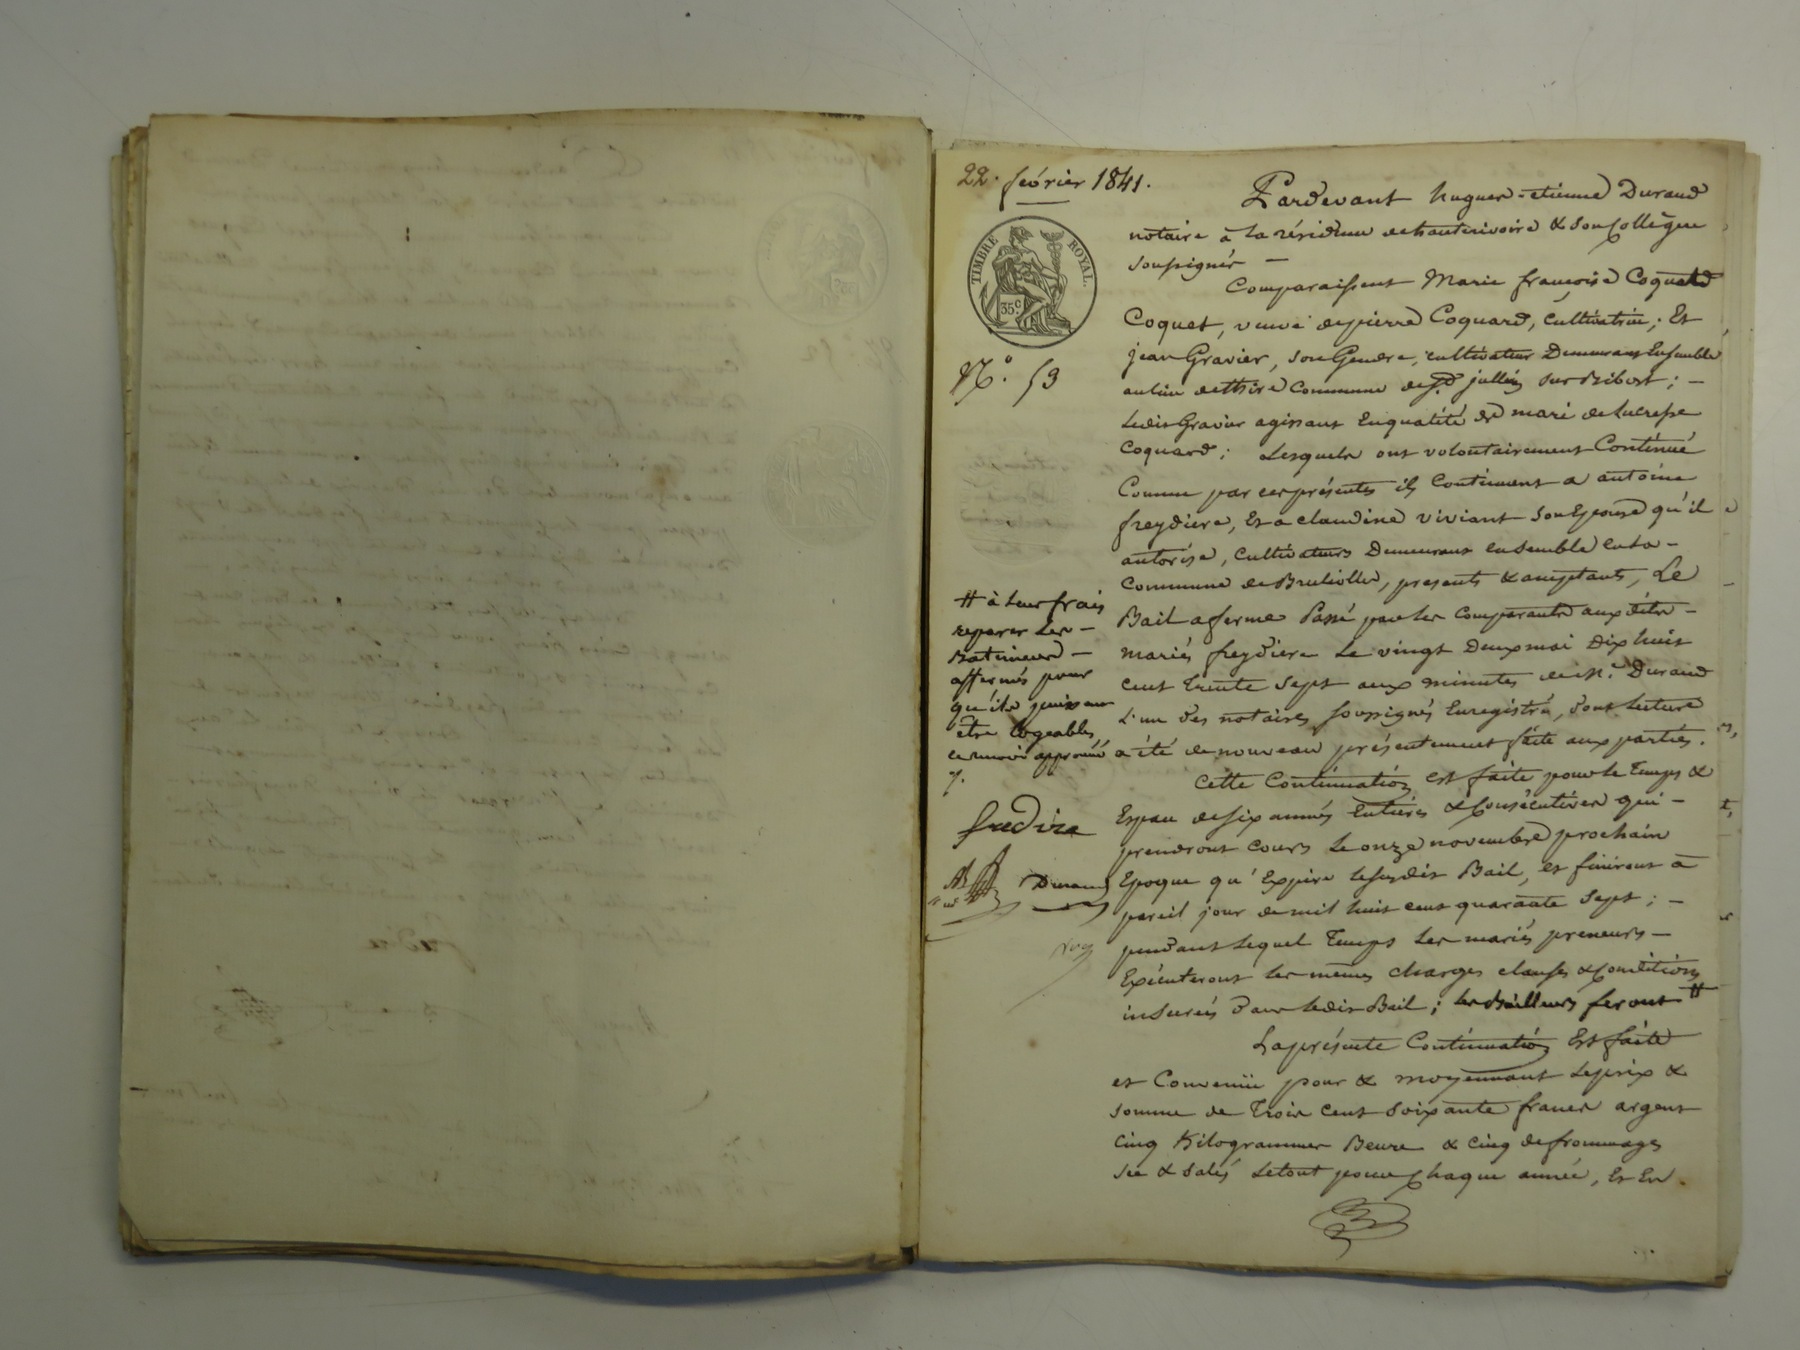 22. février 1841.
TIMBRE ROYAL.
35c.
N°. 53
Pardevant hugues=etienne Durand
notaire à la résidence dehauterivoire & son Collègue
soussignés —
Comparaissent Marie françoise Coquard
Coquet, veuve depierre Coquard, cultivatrice; Et
jean Gravier, son Gendre, cultivateur Demeurans Ensemble
au lieu de commune de St. jullien sur Bibost; —
Ledit Gravier agissant Enqualité de mari de lucresse
Coquard; Lesquels ont volontairement Continué
Comme par ces présentes ils Continuent a antoine
freydiere, Et a claudine viviant son Epouse qu'il
autorise, cultivateurs Demeurant ensemble en la —
Commune de Brulliolles, presents & acceptants, Le
Bail aferme Passé par les Comparants aux dits —
mariés freydiere Le vingt Deux mai Dix huit
cent trente sept aux minutes de Me. Durand
L'un des notaires soussignés Enregistré, dont lecture
a été de nouveau présentement faite aux parties.
Cette Continuation est faite pour le temps &
Espace de six années Entières & Consécutives qui —
prendront cours Le onze novembre prochain
Epoque qu'Expire le susdit Bail, et finiront à
pareil jour de mil huit cent quarante sept; —
pendant lequel temps les mariés preneurs —
Exécuteront les memes charges clauses & Conditions
inserées dans ledit Bail; les Bailleurs feront #
La présente Continuation Est faite
et Convenüe pour & moyennant le prix &
somme de trois cent soixante francs argent
cinq Kilogrammes Beure & cinq de frommages
sec & salés le tout pour Chaque année, Et En
# à leur frais
reparer les —
Batiments —
affermés pour
qu'ils puissent
être logeables,
ce renvoi approuvé
Durand